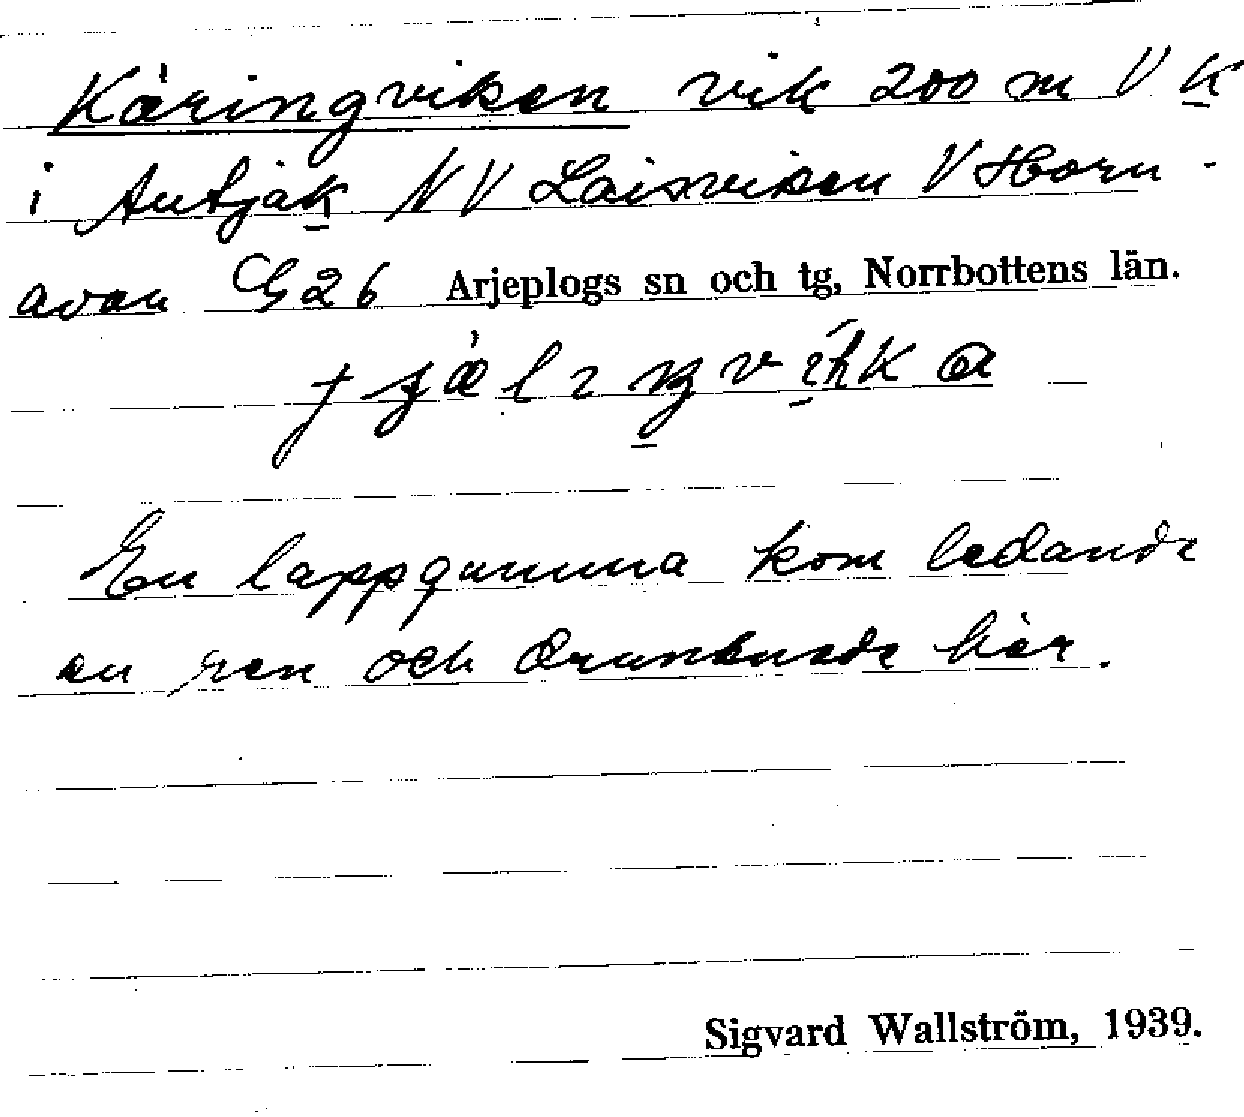 Käringviken vik 200 m V K
i Autjak NV Laisviken V Horn-
avan G26 Arjeplogs sn och tg, Norrbottens län.
En lappgumma kom ledande
en ren och drunknade här.
Sigvard Wallström, 1939.